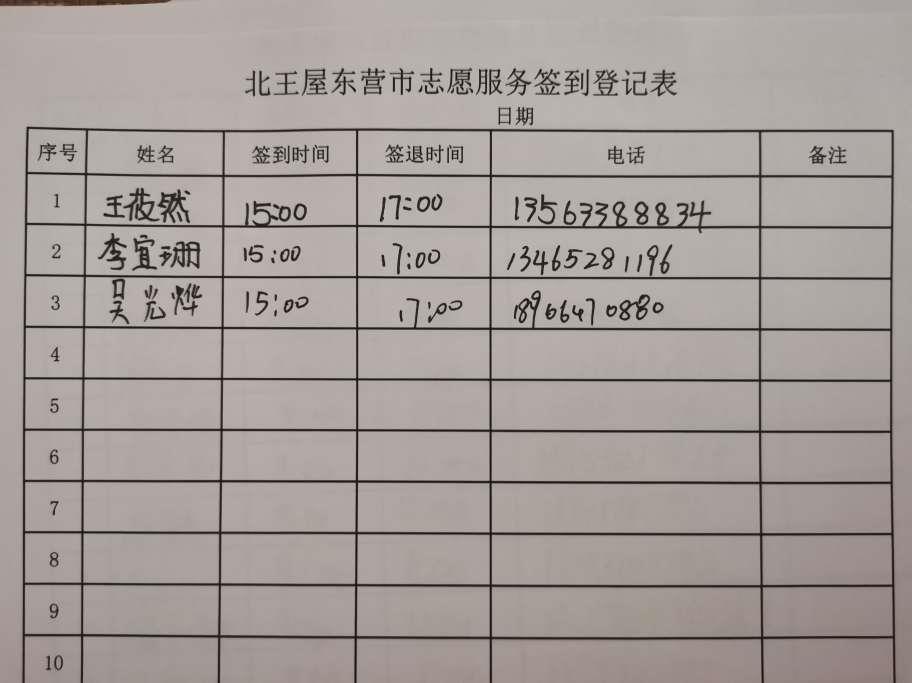 北王屋东营市志愿服务签到登记表
日期
序号 姓名 签到时间 签退时间 电话 备注
1 王莜然 15:00 17:00 13563388834
2 李宜珊 15:00 17:00 13465281196
3 吴光烨 15:00 17:00 18906470880
4
5
6
7
8
9
10